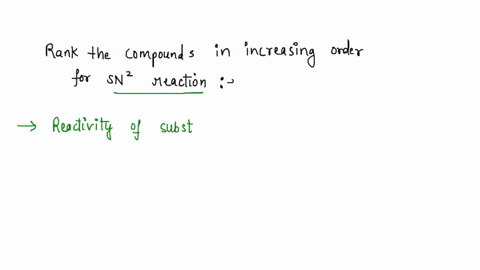 Rank the compounds in increasing order
for SN² reaction :-
→ Reactivity of subst